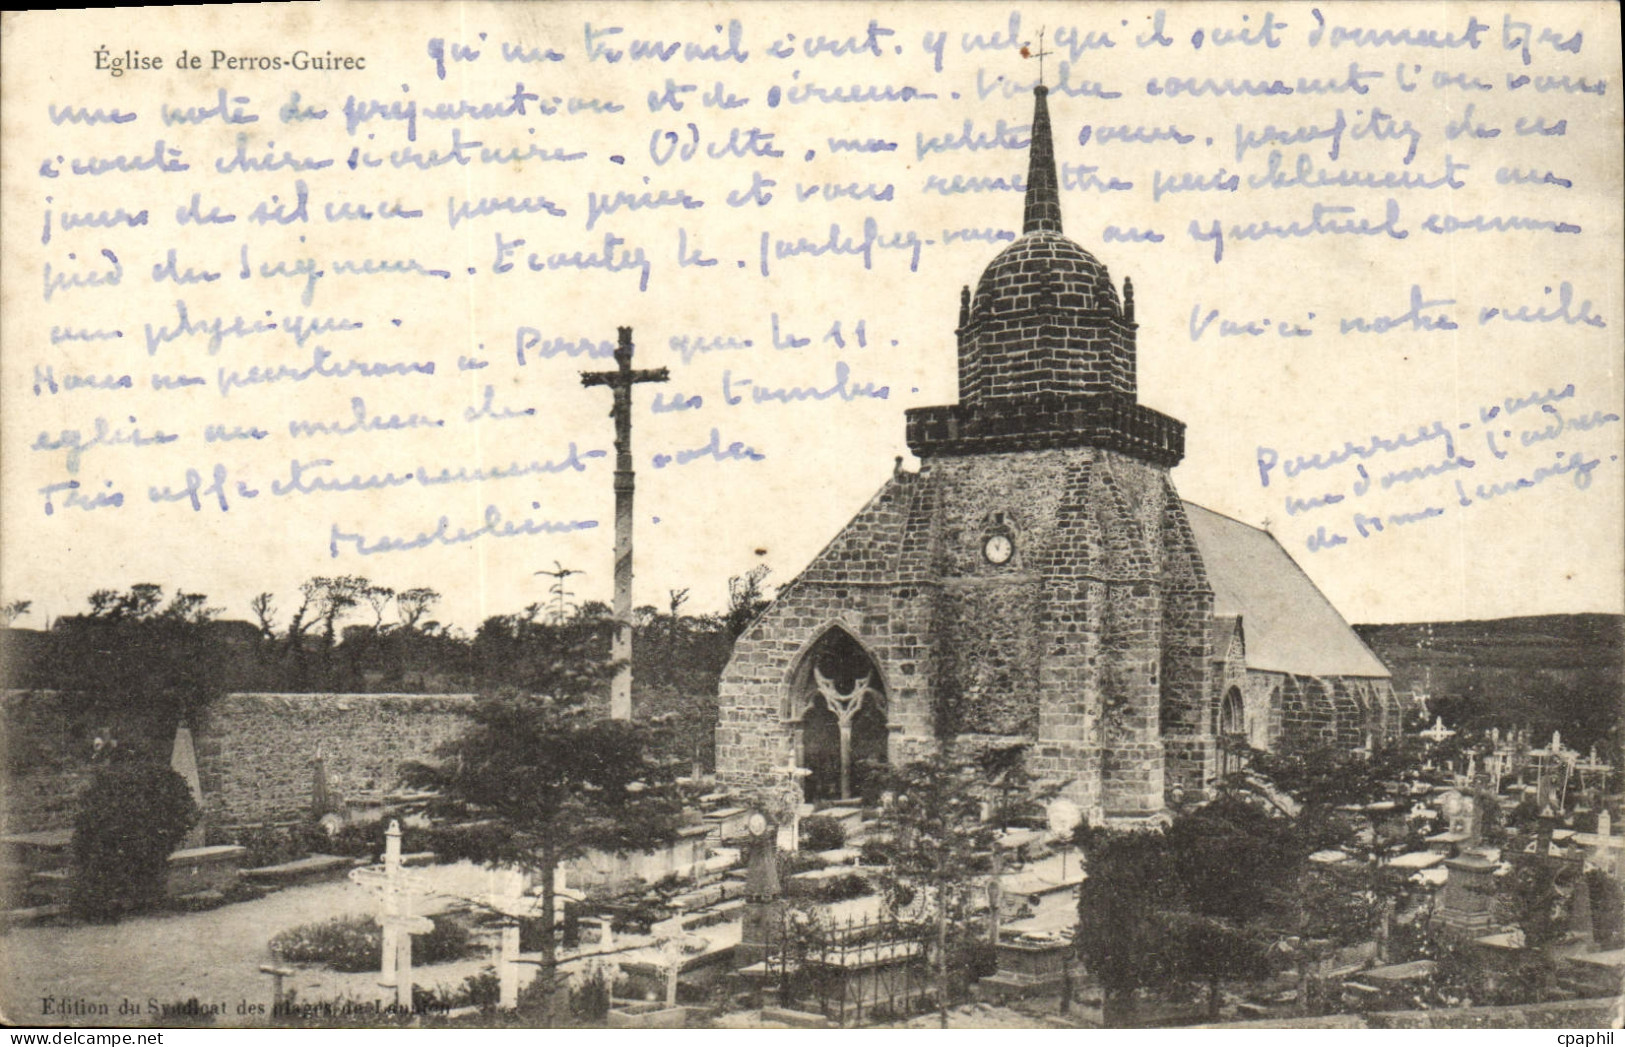 Église de Perros-Guirec
qu'un travail écrit. quel qu'il soit donnant très
une note de préparation et de sérieux. Voilà comment l'on vous
écoute chère secretaire. Odette, ma petite sœur, profitez de ces
jours de silence pour prier et vous remettre paisiblement au
pied du Seigneur. Ecoutez le. fortifiez-vous au spirituel comme
au physique.
Voici notre vieille
Nous ne partirons à Perros que le 11.
eglise au milieu de ses tombes.
Pourriez-vous
me donner l'adresse
de Mme
Très affectueusement
Madeleine
Édition du Syndicat des plages de Lannion
cpaphil